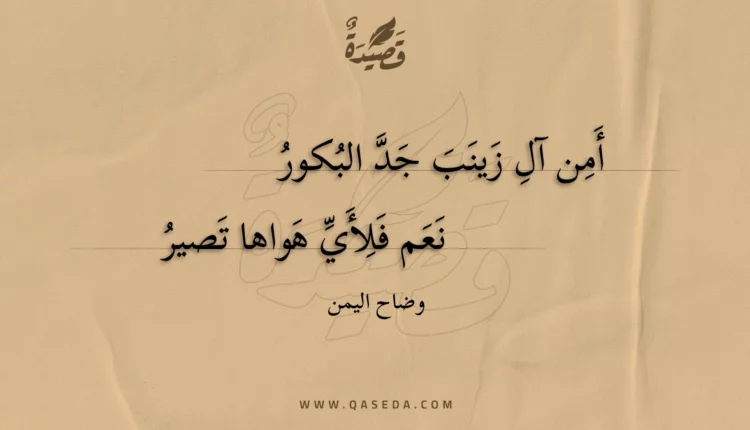 قَصِيدَةٌ
أَمِن آلِ زَينَبَ جَدَّ البُكورُ
نَعَم فَلِأَيِّ هَواها تَصيرُ
وضاح اليمن
WWW.QASEDA.COM